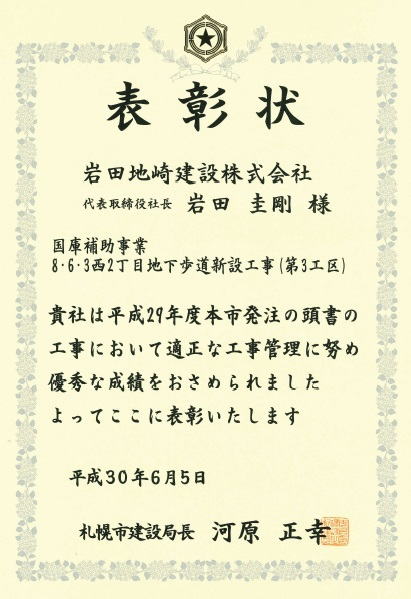 表彰状
岩田地崎建設株式会社
代表取締役社長 岩田 圭剛 様
国庫補助事業
8・6・3西2丁目地下歩道新設工事(第3工区)
貴社は平成29年度本市発注の頭書の
工事において適正な工事管理に努め
優秀な成績をおさめられました
よってここに表彰いたします
平成30年6月5日
札幌市建設局長 河原 正幸